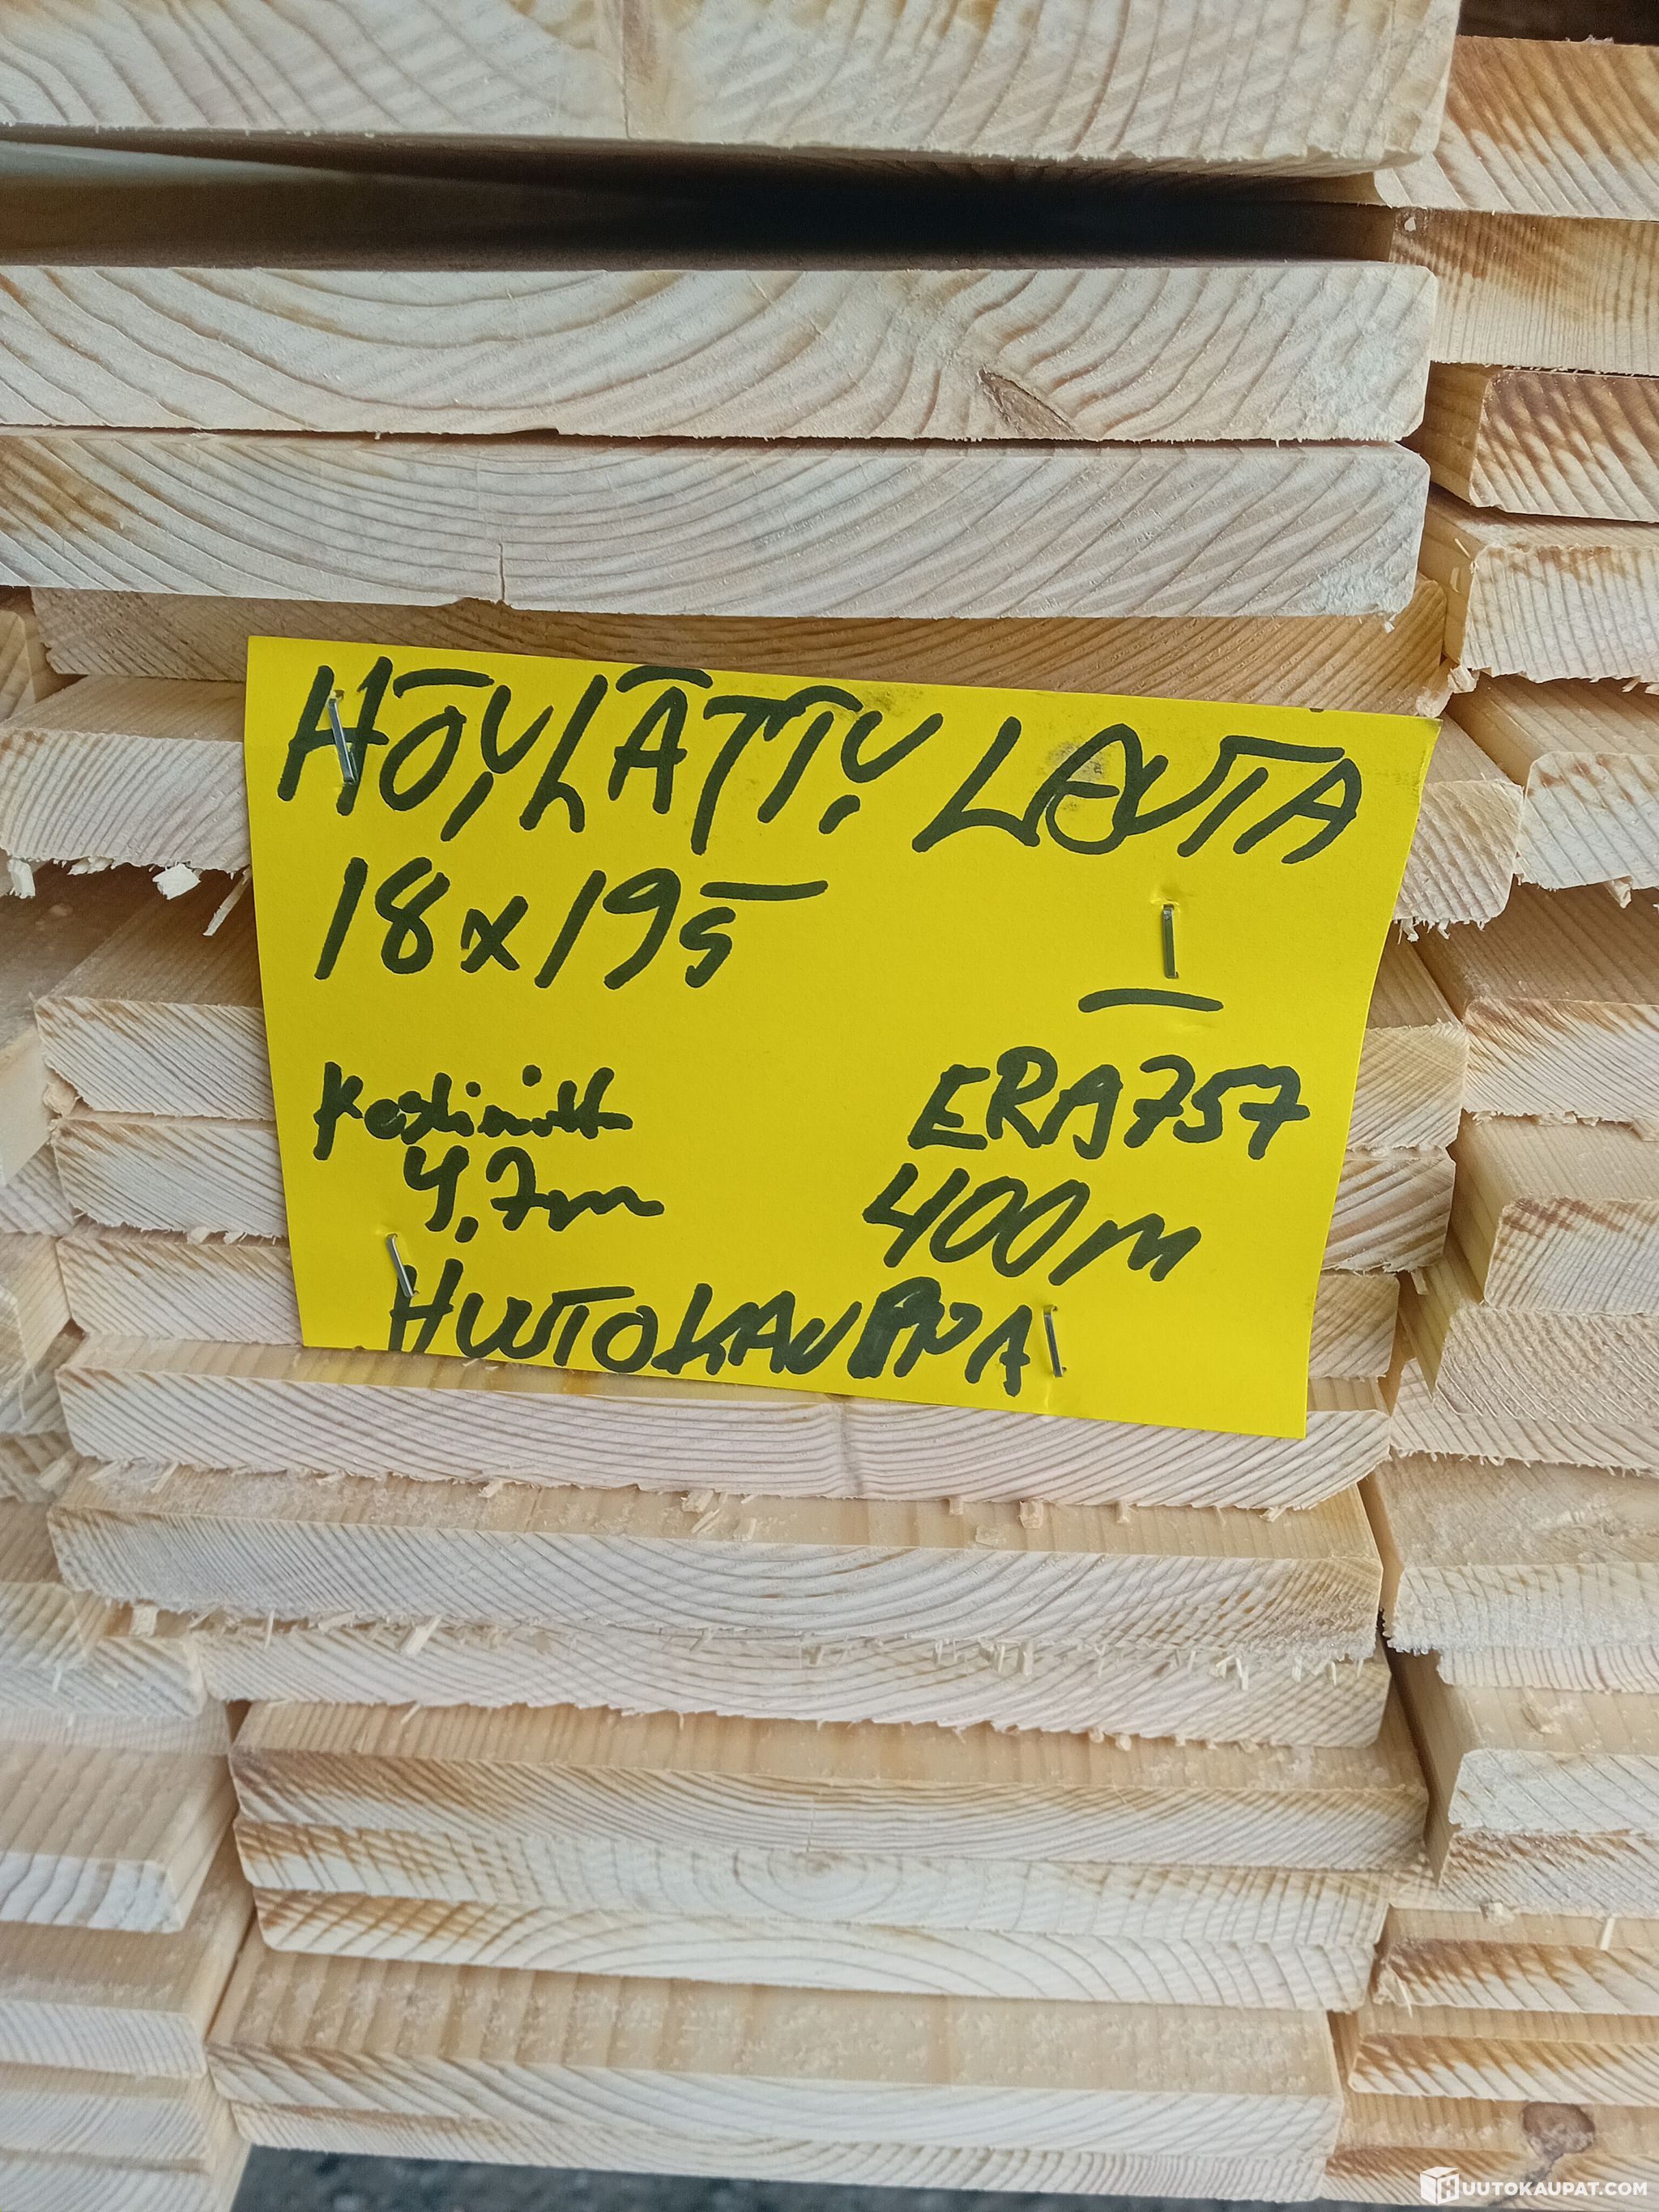 HÖYLÄTTY LAUTA
18x195
Keskimitta
4,7m
ERA757
400m
HUUTOKAUPPA
HUUTOKAUPAT.COM